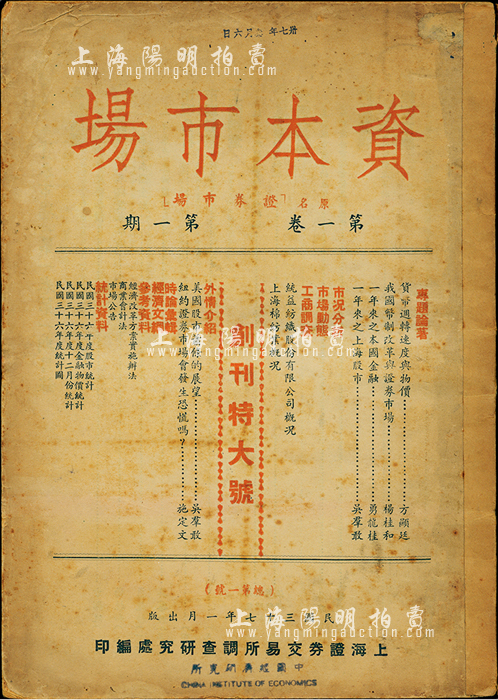 卅七年 月六日
上海陽明拍賣
www.yangmingauction.com
資本市場
原名「證券市場」
第一卷 第一期
專題論著
貨幣週轉速度與物價……方顯廷
我國幣制改革與證券市場……楊桂和
一年來之本國金融……勇龍桂
一年來之上海股市……吳羣敢
市況分析
市場動態
工商調查
統益紡織股份有限公司概況
上海棉紡業概況
創刊特大號
外情介紹
美國股市 的展望……吳羣敢
紐約證券市場會發生恐慌嗎?……施定文
時論彙輯
經濟文綱
參考資料
經濟改革方案實施辦法
商業會計法
市場公告
統計資料
民國三十六年度股市統計
民國三十六年度金融物價統計
民國三十六年十二月份統計
民國三十六年度統計圖
上海陽明拍賣
www.yangmingauction.com
(總第一號)
民國三十七年一月出版
上海陽明拍賣
www.yangmingauction.com
上海證券交易所調查研究處編印
中國經濟研究所
CHINA INSTITUTE OF ECONOMICS